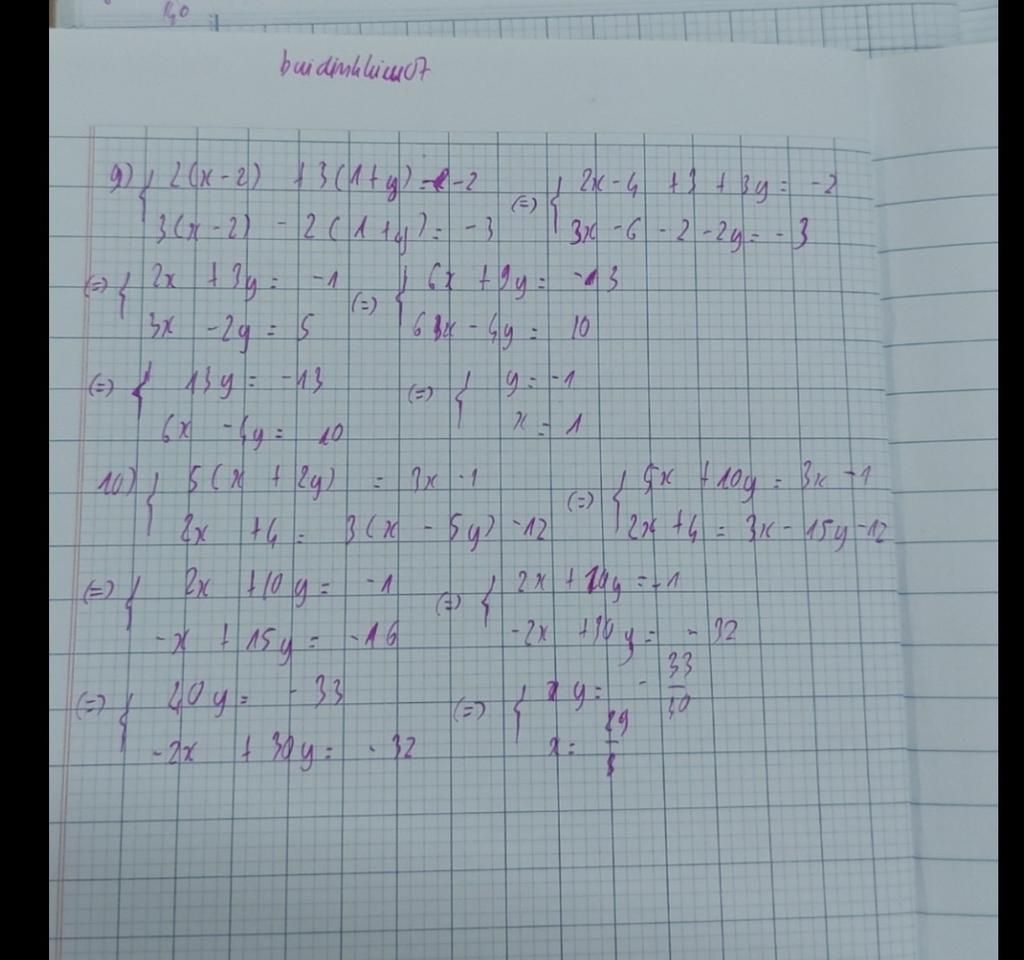 9) { 2(x-2) + 3(1+y) = -2
3(x-2) - 2(1+y) = -3
(=) { 2x-4 +3 +3y = -2
3x-6 -2 -2y = -3
(=) { 2x + 3y = -1
3x - 2y = 5
(=) { 6x + 9y = -3
6x - 4y = 10
(=) { 13y = -13
6x - 4y = 10
(=) { y = -1
x = 1
10) { 5(x + 2y) = 3x -1
2x + 4 = 3(x - 5y) -12
(=) { 5x + 10y = 3x -1
2x + 4 = 3x - 15y -12
(=) { 2x + 10y = -1
-x + 15y = -16
(=) { 2x + 10y = -1
-2x + 30y = -32
(=) { 40y = -33
-2x + 30y = -32
(=) { y = -33/40
x = 29/8